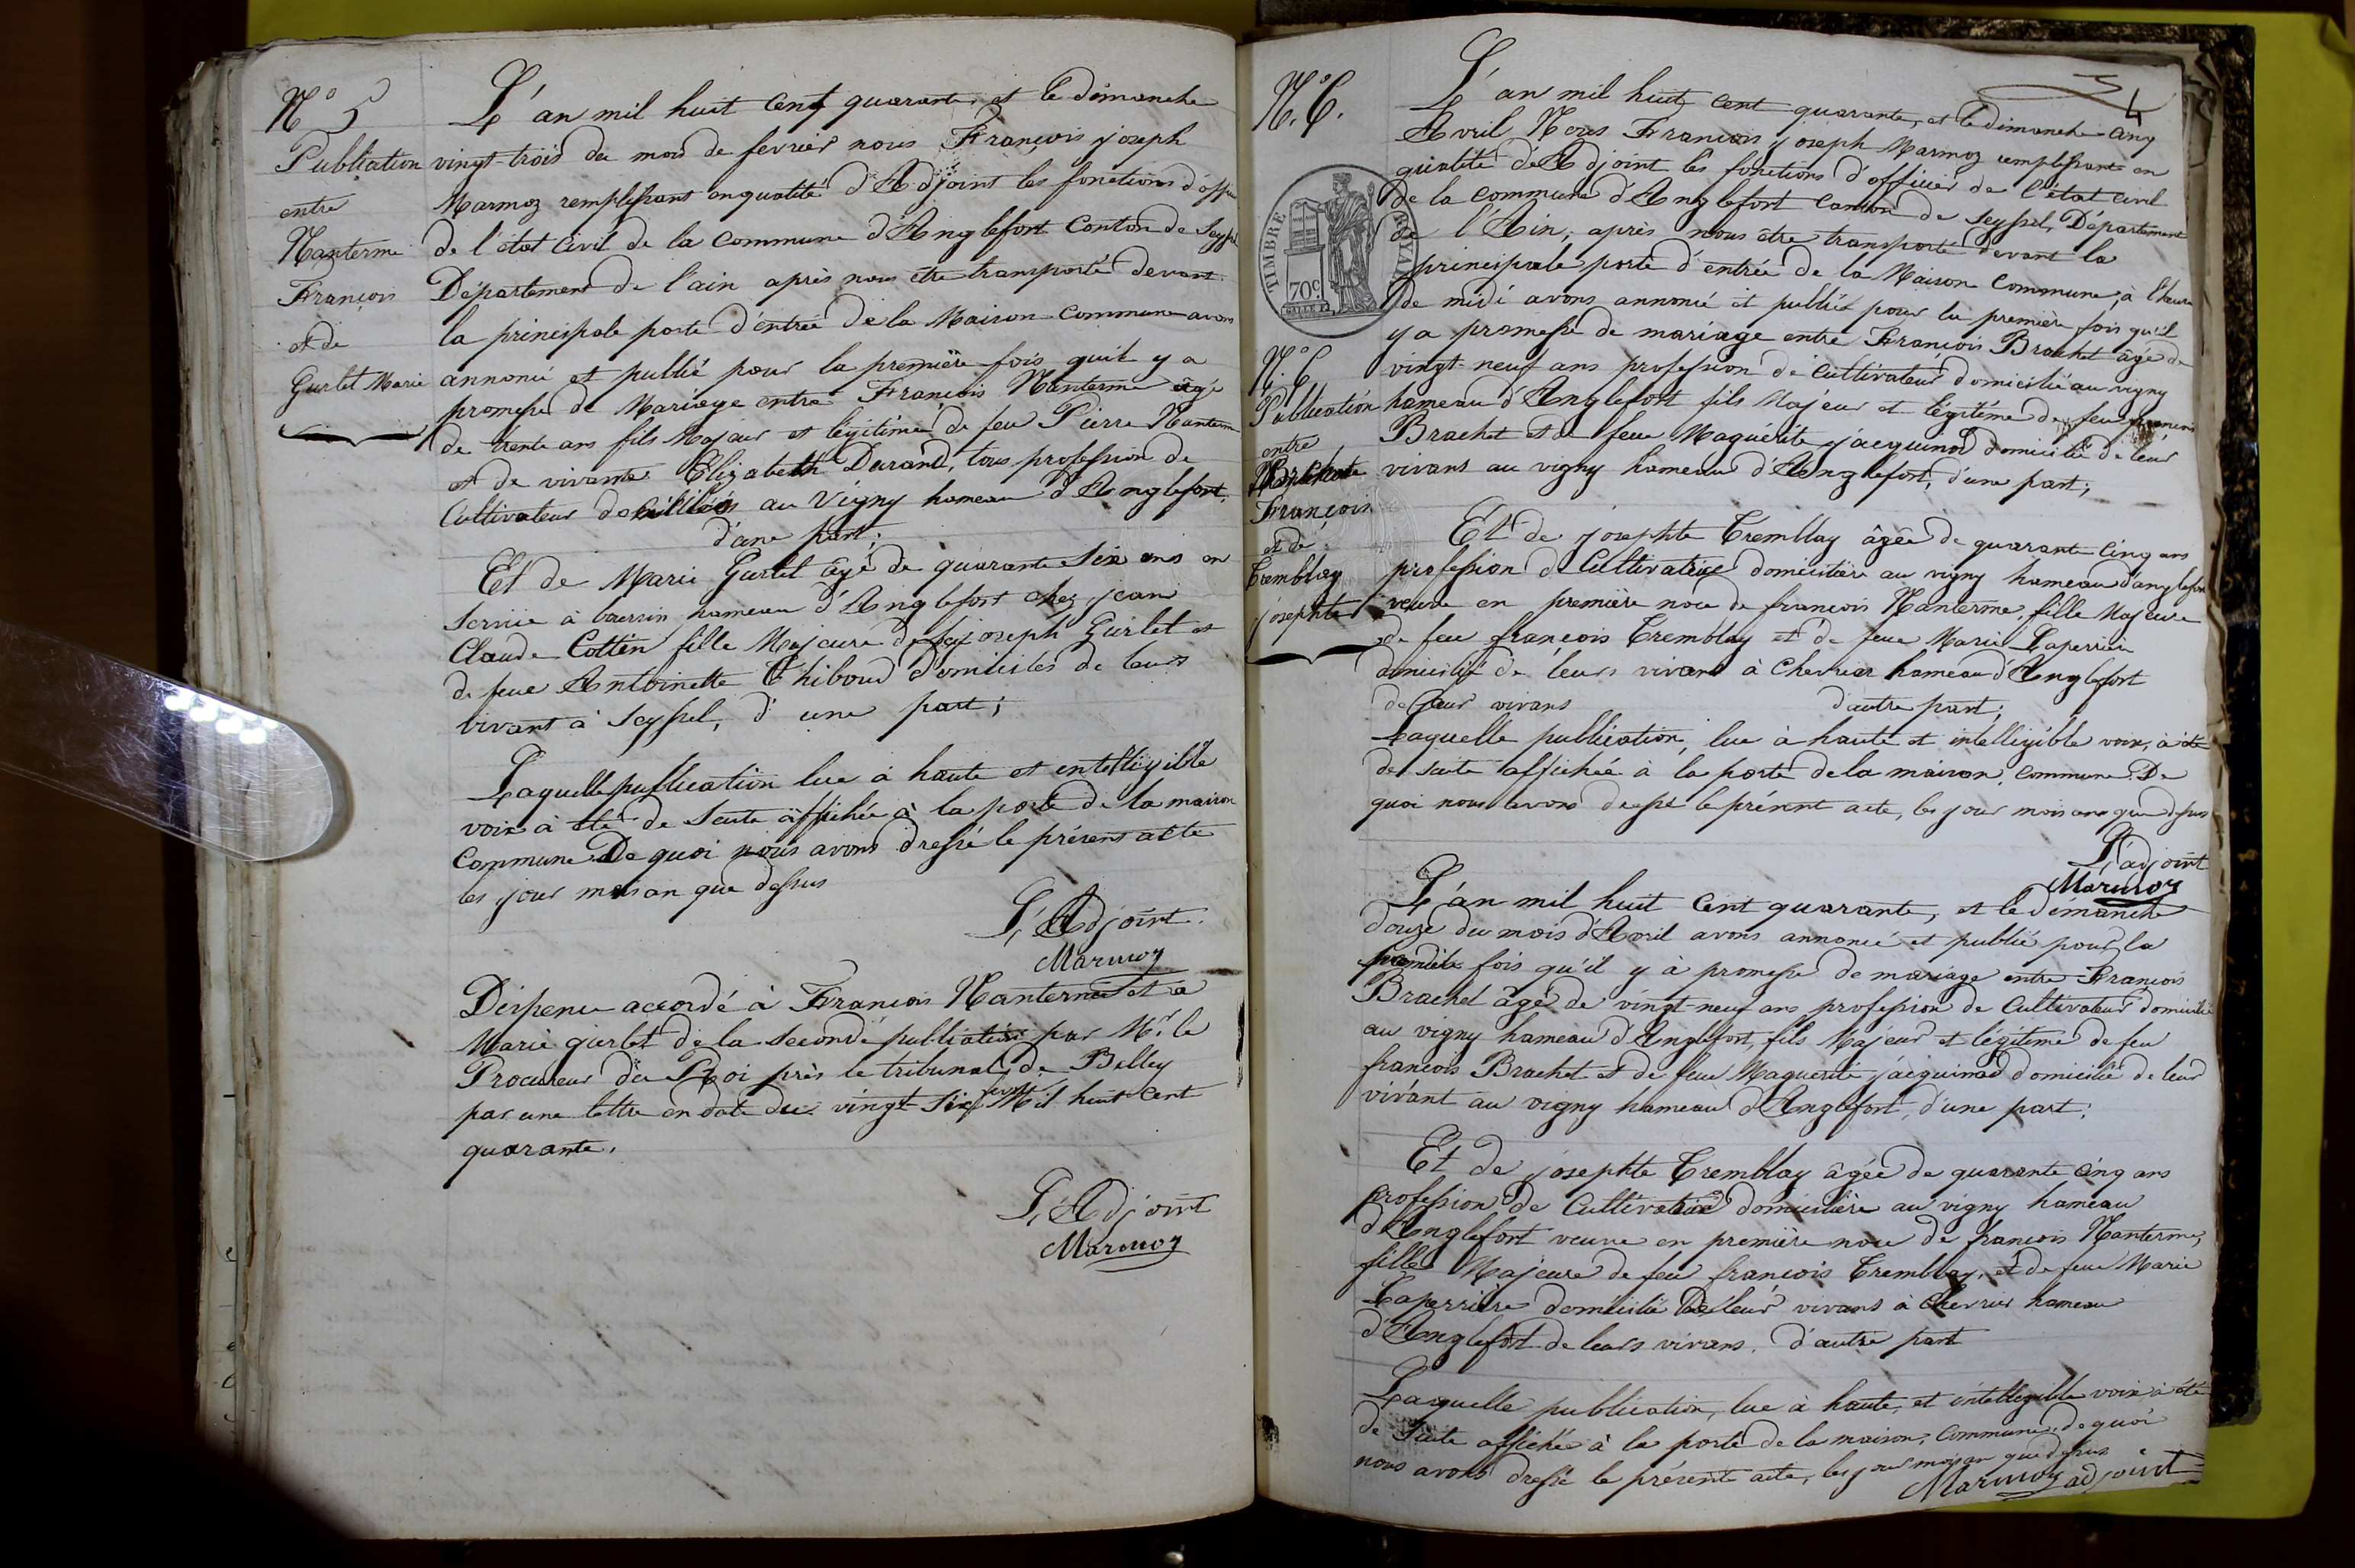 N° 5
Publication
entre
Nanterme
François
et de
Gurlet Marie
L'an mil huit cent quarante, et le dimanche
vingt-trois du mois de fevrier nous François joseph
Marmoz remplissant en qualité d'Adjoint les fonctions d'offi
de l'état Civil de la Commune d'Anglefort Canton de Seyssel
Département de l'ain après nous etre transporté devant
la principale porte d'entrée de la Maison Commune avons
annoncé et publié pour la première fois qu'il y a
promesse de Mariage entre François Nanterme âgé
de trente ans fils Majeur et légitime de feu Pierre Nanterme
et de vivante Elizabeth Durand, tous profession de
Cultivateur domiciliés au Vigny hameau d'Anglefort,
d'une part;
Et de Marie Gurlet âgé de quarante Six ans en
Service à hameau d'Anglefort chez jean
Claude Cottin fille Majeure de feu joseph Gurlet et
de feue Antoinette Thiboud domiciliés de leurs
vivant à Seyssel, d'une part;
Laquelle publication lue à haute et intelligible
voix à été de Suite affichée à la porte de la maison
Commune De quoi nous avons dressé le présent acte
les jour mois an que dessus
L'Adjoint
Marmoz
Dispense accordé à François Nanterme et a
Marie gurlet de la Seconde publication par Mr. le
Procureur du Roi près le tribunal de Belley
par une lettre en date du vingt Six Mil huit Cent
quarante.
L'Adjoint
Marmoz
N°. 6.
4
TIMBRE ROYAL
70c
L'an mil huit cent quarante, et le dimanche cinq
Avril Nous François joseph Marmoz remplissant en
qualité d'Adjoint les fonctions d'officier de l'état civil
de la Commune d'Anglefort Canton de Seyssel, Département
de l'Ain; après nous être transporté devant la
principale porte d'entrée de la Maison Commune, à l'heure
de midi avons annoncé et publié pour la première fois qu'il
y a promesse de mariage entre François Brachet âgé de
vingt-neuf ans profession de Cultivateur domicilié au vigny
hameau d'Anglefort fils Majeur et légitime de feu françois
Brachet et de feue Maguerite jacquinod domicilié de leur
vivans au vigny hameau d'Anglefort, d'une part;
N°. 6
Publication
entre
François
et de
Tremblay
josephte
Et de josephte Tremblay âgée de quarante Cinq ans
profession de Cultivatrice domicilière au vigny hameau d'anglefort
veuve en première noce de françois Nanterme, fille Majeure
de feu françois Tremblay et de feue Marie Laperrière
domicilié de leurs vivans à Chevrier hameau d'Anglefort
de leur vivans d'autre part;
Laquelle publication, lue à haute et intelligible voix, à été
de Suite affichée à la porte de la maison, Commune. De
quoi nous avons dressé le présent acte, les jour mois an que dessus
L'adjoint
Marmoz
L'an mil huit Cent quarante, et le dimanche
douze du mois d'Avril avons annoncé et publié pour la
fois qu'il y à promesse de mariage entre François
Brachet âgé de vingt-neuf ans profession de Cultivateur domicilié
au vigny hameau d'Anglefort, fils Majeur et légitime de feu
françois Brachet et de feue Maguerite jacquinod domicilié de leur
vivant au vigny hameau d'Anglefort, d'une part;
Et de josephte Tremblay âgée de quarante Cinq ans
profession de Cultivatrice domicilière au vigny hameau
d'Anglefort veuve en première noce de françois Nanterme,
fille Majeure de feu françois Tremblay, et de feue Marie
Laperrière domicilié de leur vivans à Chevrier hameau
d'Anglefort de leurs vivans. d'autre part
Laquelle publication, lue à haute, et intelligible voix à été
de Suite affichée à la porte de la maison, Commune, de quoi
nous avons dressé le présent acte, les jour mois an que dessus
Marmoz adjoint